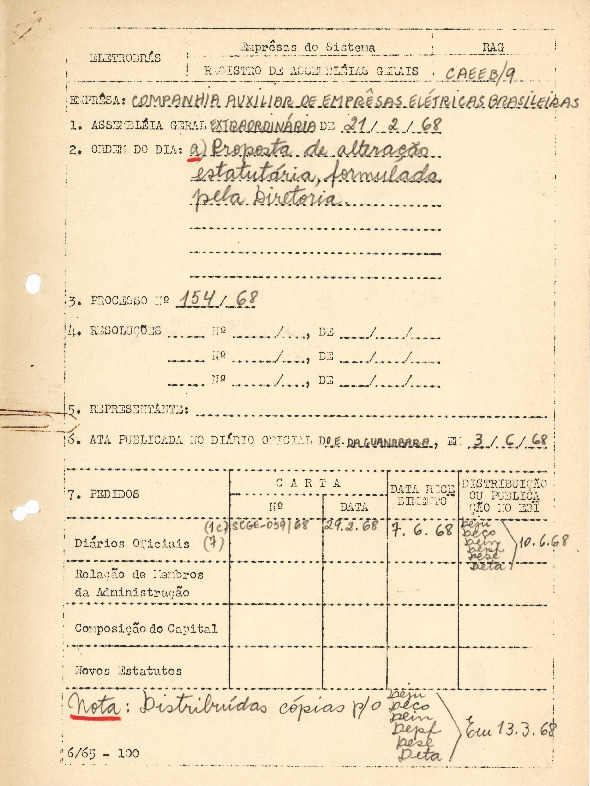 ELETROBRÁS
Emprêsas do Sistema
RAG
REGISTRO DE ASSEMBLÉIAS GERAIS
CAEEB/9
EMPRÊSA: COMPANHIA AUXILIAR DE EMPRÊSAS ELÉTRICAS BRASILEIRAS
1. ASSEMBLÉIA GERAL EXTRAORDINÁRIA DE 21/2/68
2. ORDEM DO DIA: a) Proposta de alteração
estatutária, formulada
pela Diretoria.
3. PROCESSO Nº 154/68
4. RESOLUÇÕES ..... Nº ...../...., DE ..../..../....
..... Nº ...../...., DE ..../..../....
..... Nº ...../...., DE ..../..../....
5. REPRESENTANTE:
6. ATA PUBLICADA NO DIÁRIO OFICIAL DO E. DA GUANABARA, EM 3/6/68
7. PEDIDOS
CARTA
Nº
DATA
DATA RECE
BIMENTO
DISTRIBUIÇÃO
OU PUBLICA
ÇÃO NO EBI
Diários Oficiais
(1c)
(7)
SCGE-039/68
29.2.68
7.6.68
Deju
Deco
Dein
Depf
Dese
Deta
10.6.68
Relação de Membros
da Administração
Composição do Capital
Novos Estatutos
Nota: Distribuídas cópias p/o
Deju
Deco
Dein
Depf
Dese
Deta
Em 13.3.68
6/65 - 100